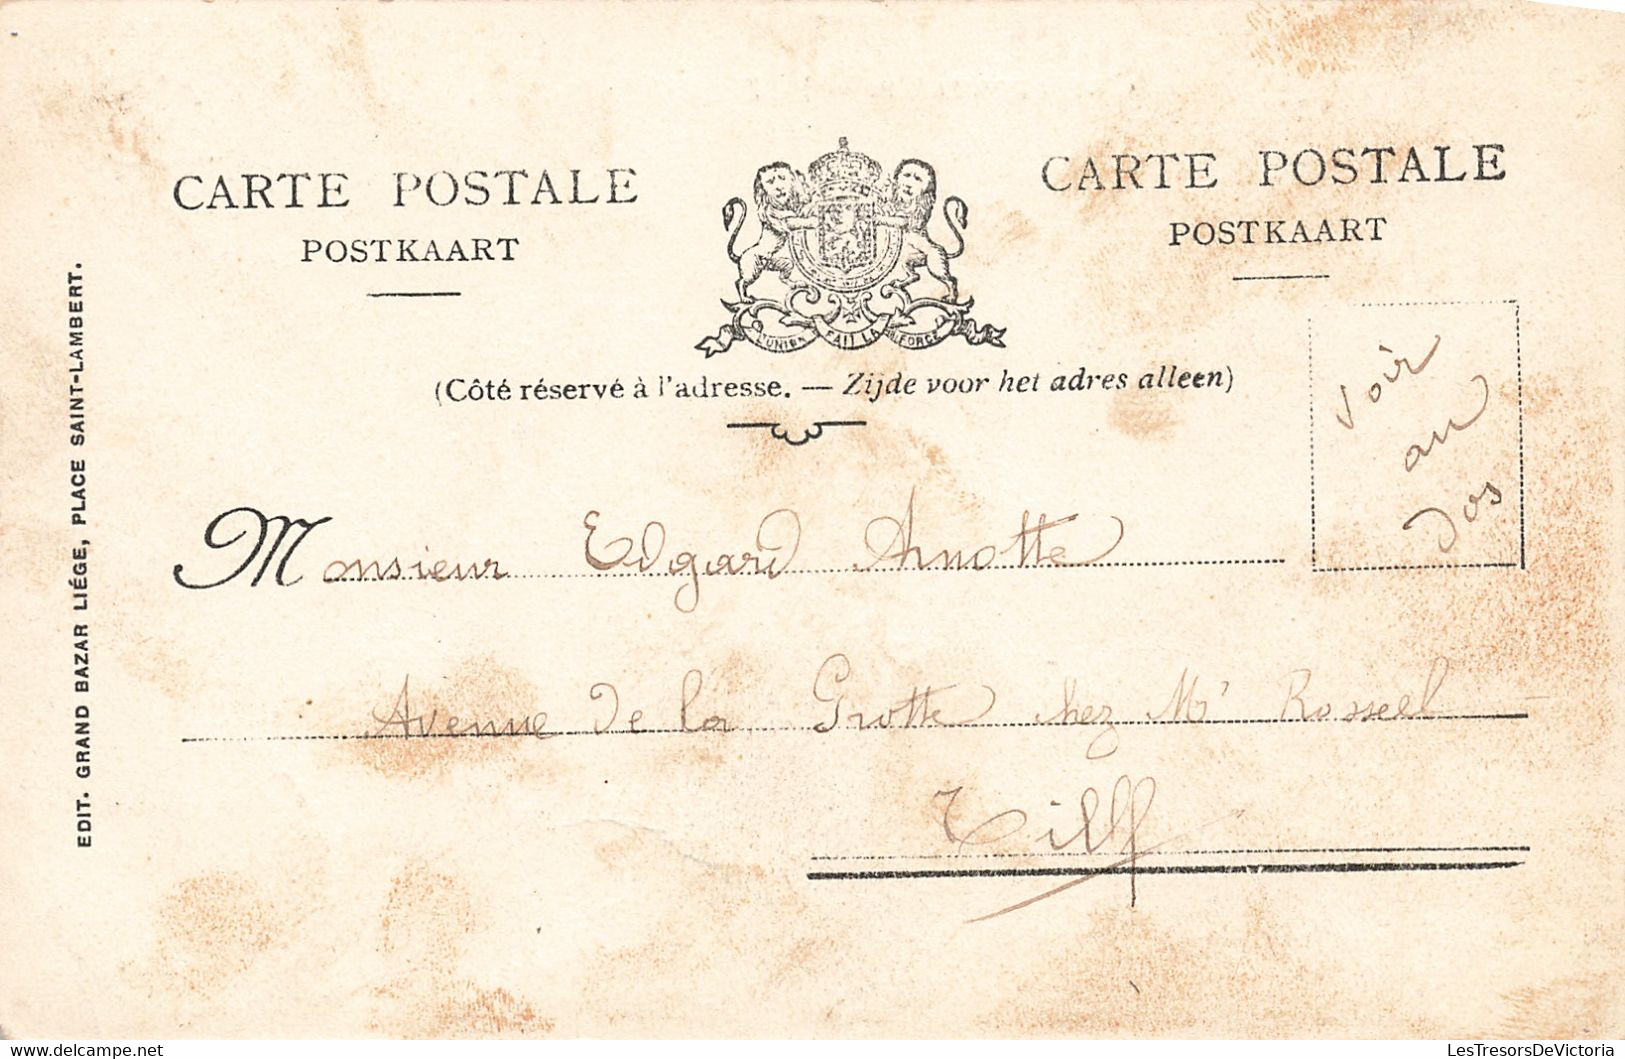 CARTE POSTALE
POSTKAART
CARTE POSTALE
POSTKAART
L'UNION FAIT LA FORCE
(Côté réservé à l'adresse. — Zijde voor het adres alleen)
Voir
au
dos
Monsieur Edgard Arnotte
Avenue de la Grotte chez Mr Rosseel
Tilff
EDIT. GRAND BAZAR LIÉGE, PLACE SAINT-LAMBERT.
LesTresorsDeVictoria